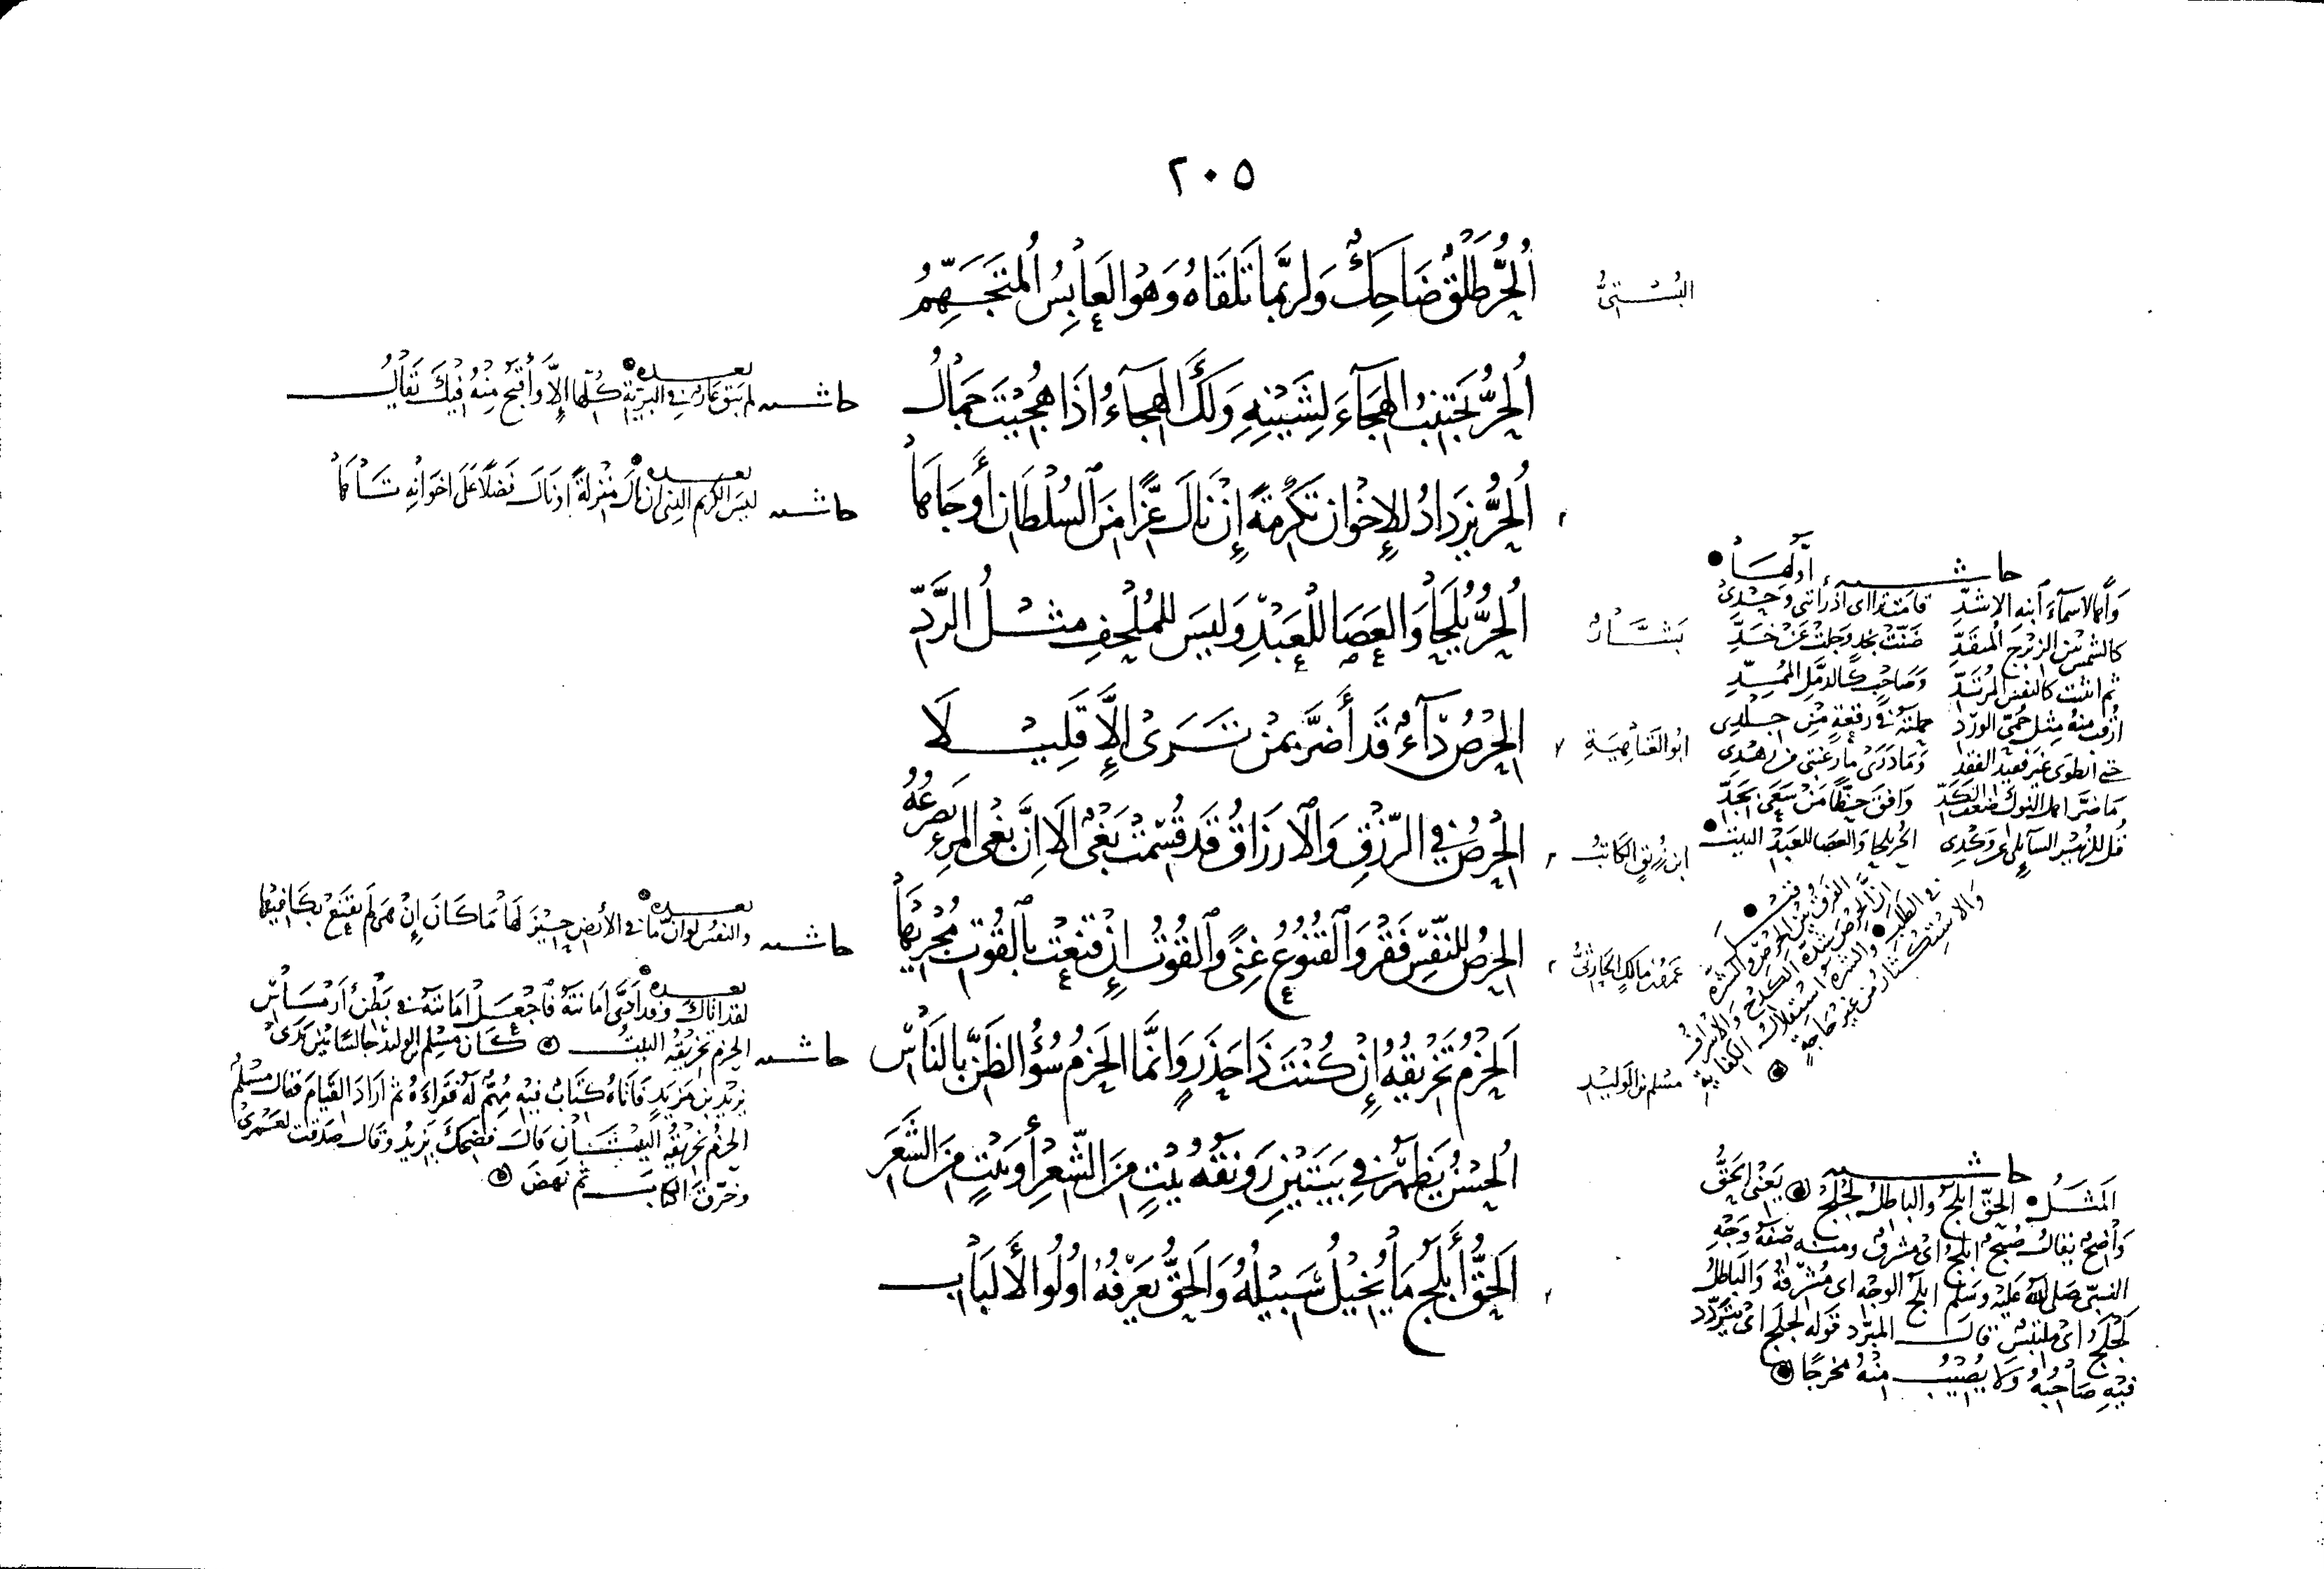 ٢٠٥
البُسْتِيُّ
اَلحُرُّ طَلْقٌ ضَاحِكٌ وَلربَّما تَلقَاهُ وَهوَ العَابِسُ المُتَجَهِّمُ
اَلحُرُّ يَجتَنِبُ الهِجَآءَ لِشَيْنِهِ وَلَكَ الهِجآءُ اذَا هُجيْتَ جَمَالُ
حاشيه
بعده
لم يَبقَ عَارٌ في البريّة كُلِّها إلّا وأَقبَحُ مِنْهُ فيْكَ يُقَالُ
اَلحُرُّ يزدَادُ للإخْوَانِ تَكرمَةً إِنْ نَالَ عزًّا منَ السُلْطَانِ أَو جَاهَا
حاشيه
بعده
ليسَ الكريم الذي ان نالَ منزلةً او نالَ فَضلاً عَلَى اخوَانِهِ تَاهَا
بَشَّارٌ
اَلحُرُّ يُلحَا وَالعَصَا للعَبْدِ وَليسَ للمُلْحِفِ مثلُ الرَّدِّ
حاشيه أوّلُهَا
وَاهًا لاسمآءَ ابنة الاشدِّ قامَت تراآى اذ رَأتني وَحْدِي
كالشمس بَيْنَ الزبرجِ المُنقَدِّ ضَنَّت بخدٍ وَجلَتْ عَنْ خَدِّ
ثم انثنت كالنفسِ المُرتَدِّ وَصَاحِبٍ كالدمَّلِ المُمِدِّ
ارقبُ منهُ مِثلَ حُمَّى الوِرْدِ حملتهُ في رقعَةٍ مِن جِلْدِي
حتى انطوى غيرَ فقيدِ الفَقدِ وَمَا دَرَى ما رغبتي من زهْدِي
مَا ضرَّ اهلَ النوكِ ضعفُ الكَدِّ وَافقَ حظًّا مَنْ سَعَى بجَدِّ
الحُرُّ يلحا وَالعصا للعَبْدِ البيت
ابو العَتَاهِيَةِ
الحِرْصُ دَآءٌ قَد أَضرَّ بمَنْ تَرَى إِلَّا قَلِيلَا
ابن زُرَيْقٍ الكَاتِبُ
الحِرْصُ في الرّزْقِ وَالارزَاقُ قَد قُسِمَتْ بَغْيٌ الَا اِنَّ بغْيَ المرءِ يَصرَعُهُ
فرق
الفَرقُ بَيْنَ الحِرْصِ وَالشَرَهِ
انَّ الحِرصَ شدَّة الكَدحِ وَالاسرَافُ
في الطَلَبِ وَالشَرَهُ استقلالُ الكفَايةِ
وَالاسْتِكثَارُ مِن غيرِ حَاجَةٍ
عَمرُو بْنُ مَالكٍ الحَارثيُّ
الحِرصُ للنَّفسِ فَقْرٌ وَالقُنُوعُ غِنًى وَالقُوتُ إِنْ قنعَتْ بالقُوتِ مُجْزِيهَا
حاشيه
بعده
وَالنفسُ لَو انَّ مَا في الأرضِ حِيزَ لَهَا مَا كَانَ إِنْ هيَ لَم تَقنَعْ بكَافيْهَا
مسْلم بن الوَليْدِ
اَلحَزمُ تَخْرِيقُهُ إِن كُنْتَ ذَا حَذَرٍ وَإنَّمَا الحَزمُ سُوْءُ الظَنِّ بالنَاسِ
حاشيه
بعده
لقد اتاكَ وَقد أَدَّى اَمَانتَهُ فَاجْعَل امَانتَهُ في بَطْنِ أَرْمَاسِ
الحزم تخريقه البيت كَانَ مُسلم بن الوليْد جَالسًا بَيْنَ يَدَيْ
يَزيْدَ بن مَزيَدٍ فَاتَاهُ كتَابٌ فيْهِ مُهِمٌّ لَهُ فَقَرَاءَهُ ثم ارَادَ القيَامَ فقال مسلمٌ
الحزمُ تخريقُهُ البَيْتَانِ قالَ فضحِكَ يَزيدُ وقَالَ صدقتَ لعَمْرِي
وخرَّقَ الكتَابَ ثم نَهَضَ
اَلحُسْنُ يَظهَرُ في بَيتَيْنِ رَونقُهُ بَيْتٍ مِنَ الشِّعرِ أَو بَيْتٍ مِنَ الشَّعَرِ
اَلحَقُّ أَبلَجُ مَا يُخِيْلُ سَبِيْلُهُ وَالحَقُّ يَعرِفُهُ أُولُوا الأَلبَابِ
حاشيه
المَثَلُ الحقّ ابلجُ وَالباطلُ لَجْلَجٌ يَعْني الحَقُّ
وَاضحٌ يقالُ صُبْحٌ ابلجُ اي مشرقٌ ومنه صفَةُ وَجْهِ
النبيّ صَلى الله عَليْهِ وسَلّم ابلَجُ الوجْهِ اي مُشرِقُهُ وَالبَاطلُ
لَجْلَجٌ ايْ ملتبسٌ قالَ المبرّد قولهُ لجلج اي يَتَردّد
فيْهِ صَاحبُهُ وَلَا يُصِيْبُ مِنهُ مخرجًا